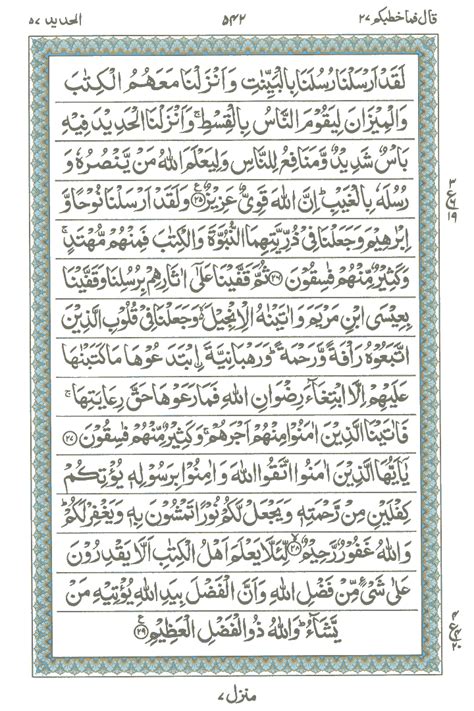 قال فما خطبكم ٢٧ ٥٤٢ الحديد ٥٧
لَقَدْ اَرْسَلْنَا رُسُلَنَا بِالْبَيِّنٰتِ وَاَنْزَلْنَا مَعَهُمُ الْكِتٰبَ
وَالْمِيْزَانَ لِيَقُوْمَ النَّاسُ بِالْقِسْطِ ۚ وَاَنْزَلْنَا الْحَدِيْدَ فِيْهِ
بَاْسٌ شَدِيْدٌ وَّمَنَافِعُ لِلنَّاسِ وَلِيَعْلَمَ اللّٰهُ مَنْ يَّنْصُرُهٗ وَ
رُسُلَهٗ بِالْغَيْبِ ؕ اِنَّ اللّٰهَ قَوِيٌّ عَزِيْزٌ ﴿٢٥﴾ ع وَلَقَدْ اَرْسَلْنَا نُوْحًا وَّ
٣ ع ٦ ١٩
اِبْرٰهِيْمَ وَجَعَلْنَا فِيْ ذُرِّيَّتِهِمَا النُّبُوَّةَ وَالْكِتٰبَ فَمِنْهُمْ مُّهْتَدٍ ۚ
وَكَثِيْرٌ مِّنْهُمْ فٰسِقُوْنَ ﴿٢٦﴾ ثُمَّ قَفَّيْنَا عَلٰۤى اٰثَارِهِمْ بِرُسُلِنَا وَقَفَّيْنَا
بِعِيْسَى ابْنِ مَرْيَمَ وَاٰتَيْنٰهُ الْاِنْجِيْلَ ۙ وَجَعَلْنَا فِيْ قُلُوْبِ الَّذِيْنَ
اتَّبَعُوْهُ رَاْفَةً وَّرَحْمَةً ؕ وَرَهْبَانِيَّةَ ۨ ابْتَدَعُوْهَا مَا كَتَبْنٰهَا
عَلَيْهِمْ اِلَّا ابْتِغَآءَ رِضْوَانِ اللّٰهِ فَمَا رَعَوْهَا حَقَّ رِعَايَتِهَا ۚ
فَاٰتَيْنَا الَّذِيْنَ اٰمَنُوْا مِنْهُمْ اَجْرَهُمْ ۚ وَكَثِيْرٌ مِّنْهُمْ فٰسِقُوْنَ ﴿٢٧﴾
يٰۤاَيُّهَا الَّذِيْنَ اٰمَنُوا اتَّقُوا اللّٰهَ وَاٰمِنُوْا بِرَسُوْلِهٖ يُؤْتِكُمْ
كِفْلَيْنِ مِنْ رَّحْمَتِهٖ وَيَجْعَلْ لَّكُمْ نُوْرًا تَمْشُوْنَ بِهٖ وَيَغْفِرْ لَكُمْ ؕ
وَاللّٰهُ غَفُوْرٌ رَّحِيْمٌ ﴿٢٨﴾ لِّئَلَّا يَعْلَمَ اَهْلُ الْكِتٰبِ اَلَّا يَقْدِرُوْنَ
عَلٰى شَيْءٍ مِّنْ فَضْلِ اللّٰهِ وَاَنَّ الْفَضْلَ بِيَدِ اللّٰهِ يُؤْتِيْهِ مَنْ
يَّشَآءُ ؕ وَاللّٰهُ ذُو الْفَضْلِ الْعَظِيْمِ ﴿٢٩﴾ ع
٤ ع ٤ ٢٠
منزل ٧